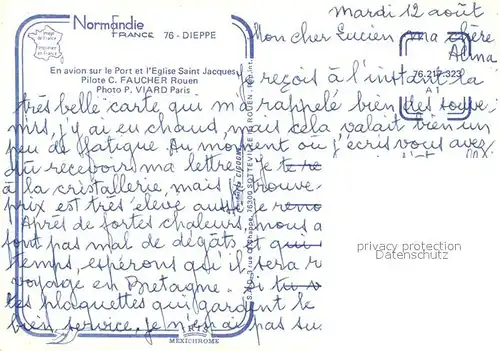 Mardi 12 août
Normandie
FRANCE 76 - DIEPPE
Mon cher Lucien ma chère
Alma
Image de France
Imprimée en France
En avion sur le Port et l'Eglise Saint Jacques
Pilote C. FAUCHER Rouen
Photo P. VIARD Paris
76.217.323
A 1
Je reçois à l'instant la
très belle carte qui m'a rappelé bien des souve
nirs, j'y ai eu chaud, mais cela valait bien un
peu de fatigue. Au moment où j'écris vous avez
dû recevoir ma lettre. Je
à la cristallerie, mais trouve
prix est très élevé aussi je
Après de fortes chaleurs, nous a
font pas mal de dégâts et
temps, espérons qu'il sera
voyage en Bretagne. Si tu
les plaquettes qui gardent le
bien service, je n'en ai pas
privacy protection
Datenschutz
MEXICHROME